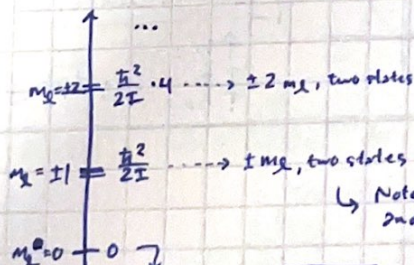 ...
m_ℓ=±2 ħ²/2I ·4 ----> ±2 m_ℓ, two states
m_ℓ = ±1 ħ²/2I ----> ±m_ℓ, two states
↳
m_ℓ=0 0